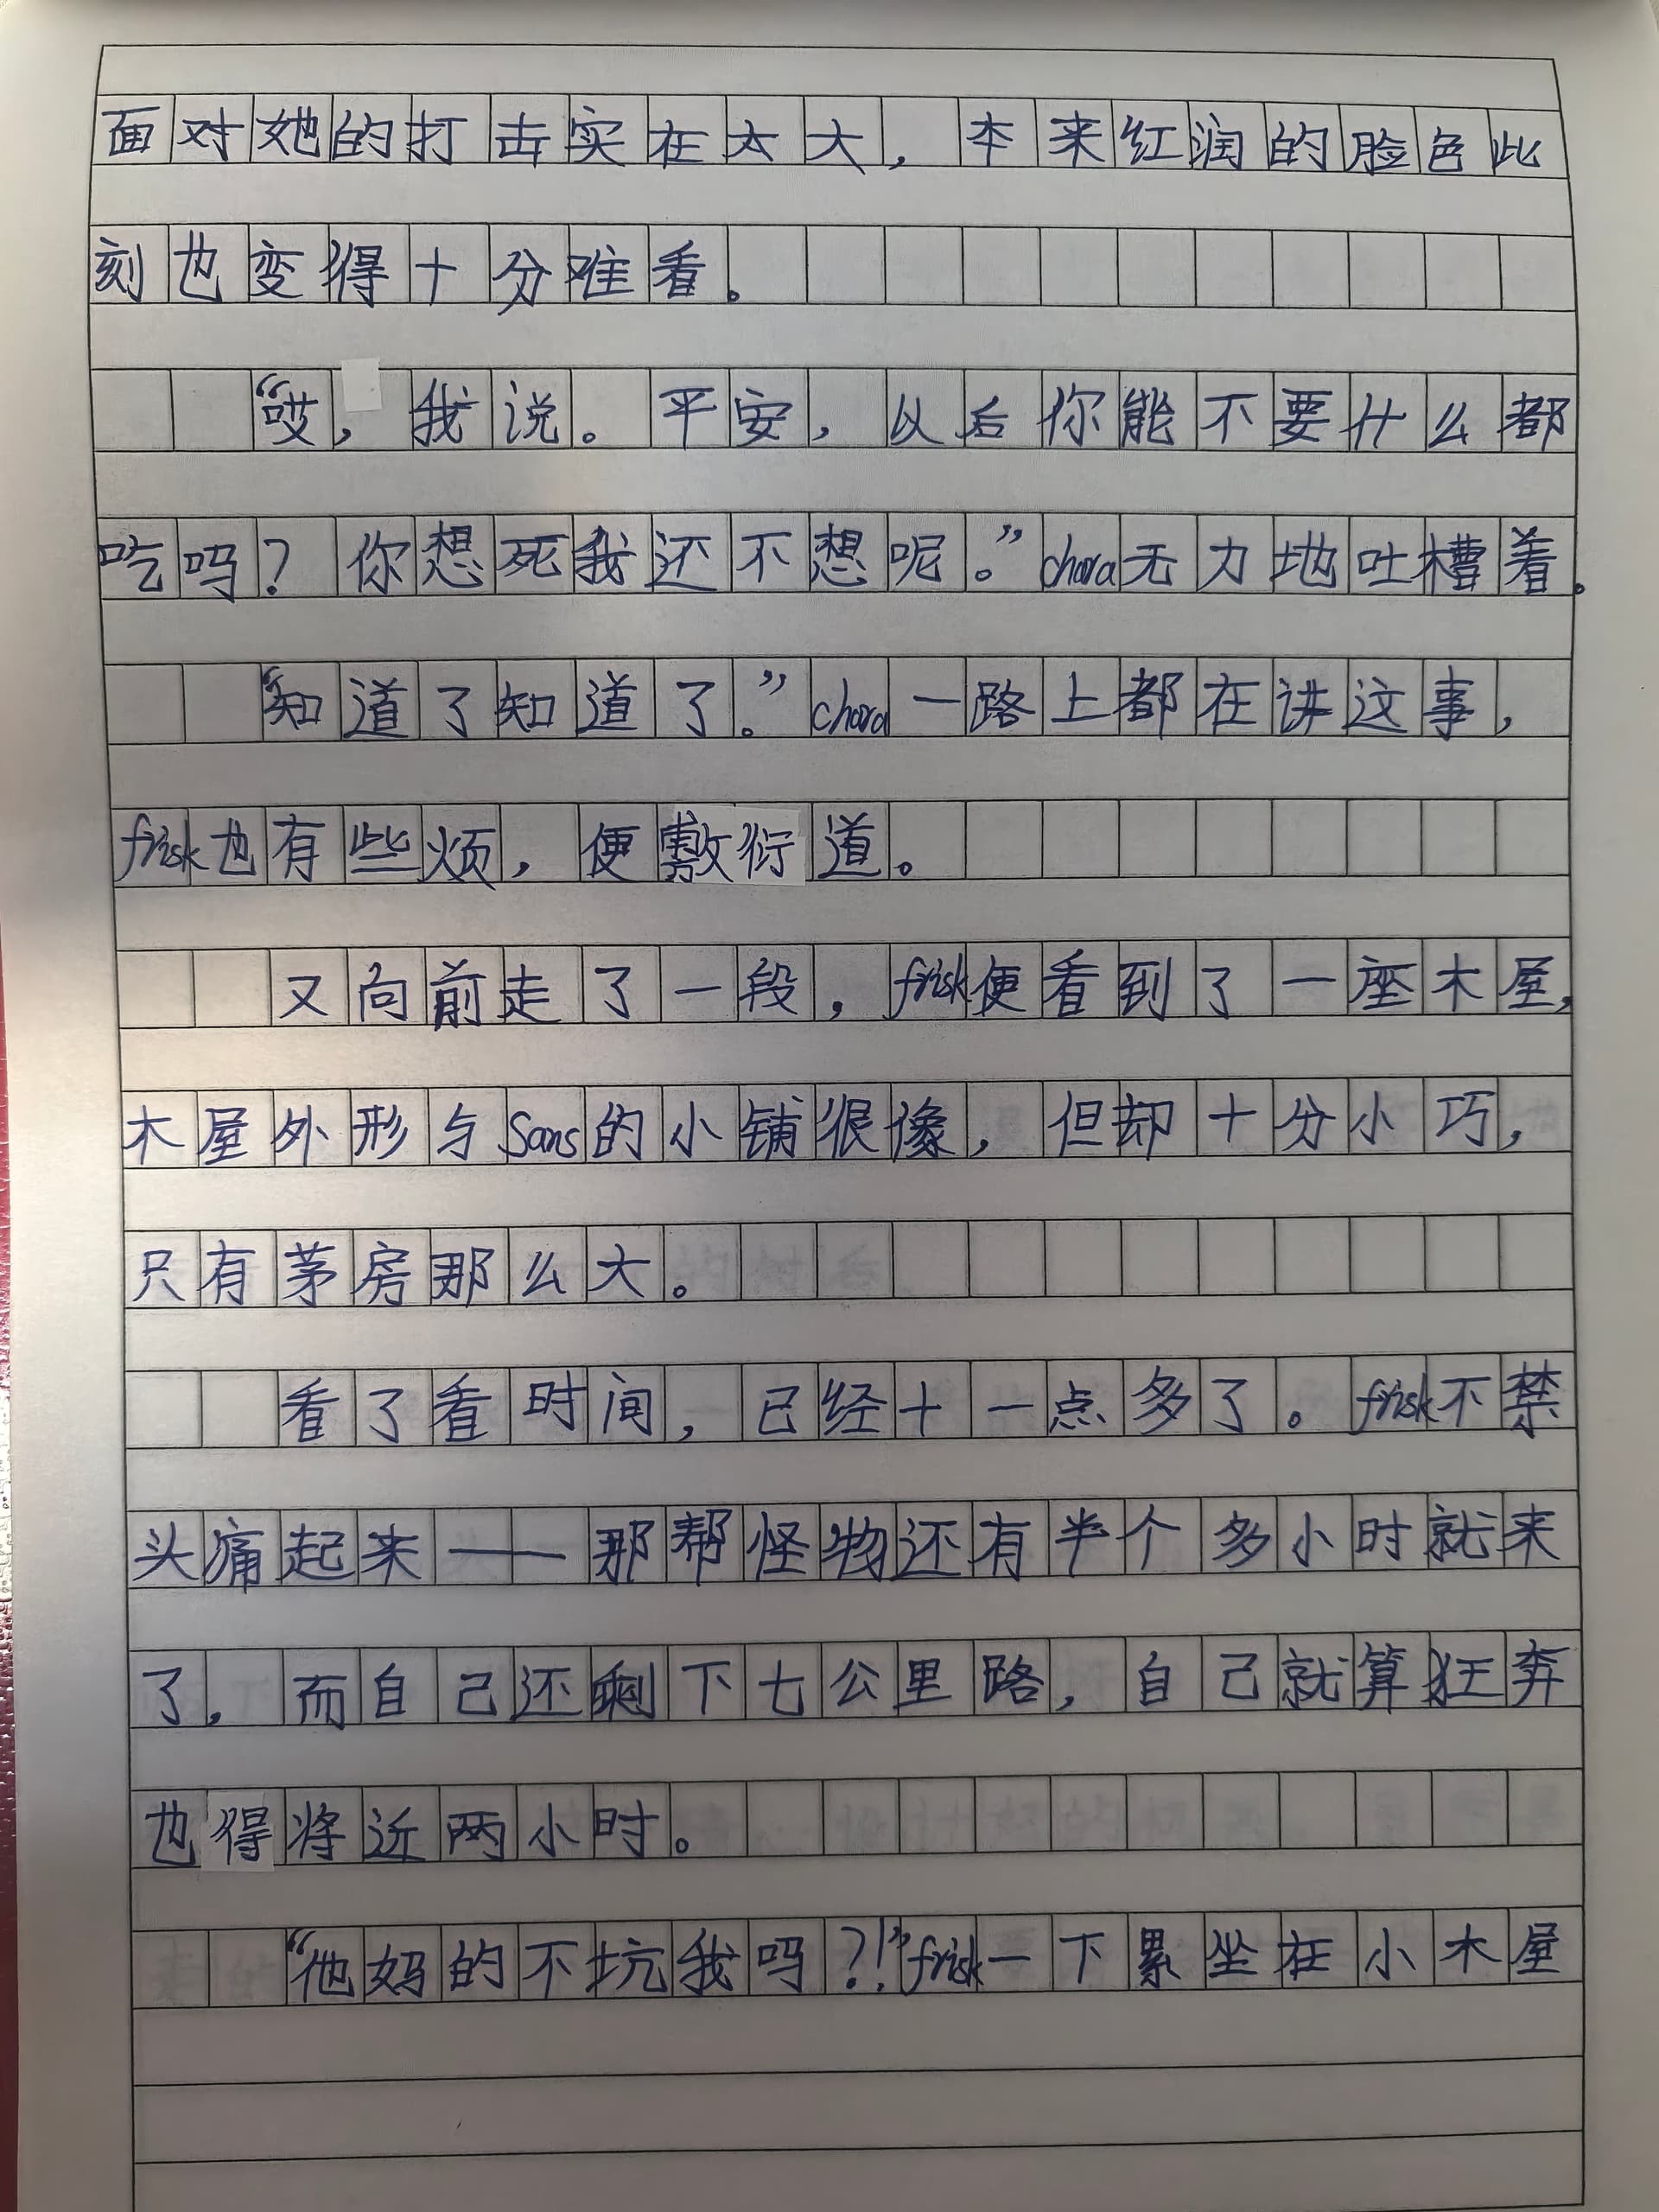 面对她的打击实在太大，本来红润的脸色此
刻也变得十分难看。
“哎，我说。平安，以后你能不要什么都
吃吗？你想死我还不想呢。”chara无力地吐槽着。
“知道了知道了。”chara一路上都在讲这事，
frisk也有些烦，便敷衍道。
又向前走了一段，frisk便看到了一座木屋，
木屋外形与Sans的小铺很像，但却十分小巧，
只有茅房那么大。
看了看时间，已经十一点多了。frisk不禁
头痛起来——那帮怪物还有半个多小时就来
了，而自己还剩下七公里路，自己就算狂奔
也得将近两小时。
“他妈的不坑我吗？！”frisk一下累坐在小木屋